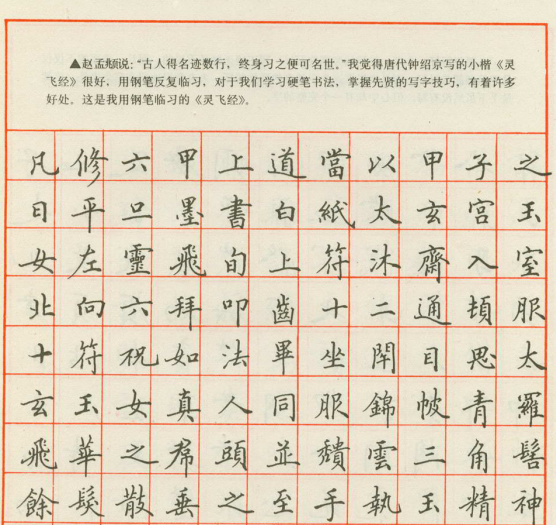 ▲赵孟頫说：“古人得名迹数行，终身习之便可名世。”我觉得唐代钟绍京写的小楷《灵
飞经》很好，用钢笔反复临习，对于我们学习硬笔书法，掌握先贤的写字技巧，有着许多
好处。这是我用钢笔临习的《灵飞经》。
凡修六甲上道當以甲子之
日平旦墨書白紙太玄宮玉
女左靈飛旬上符沐齋入室
北向六拜叩齒十二通頓服
十符祝如法畢坐閇目思太
玄玉女真人同服錦帔青羅
飛華之帬頭並穨雲三角髻
餘髮散垂之至手執玉精神